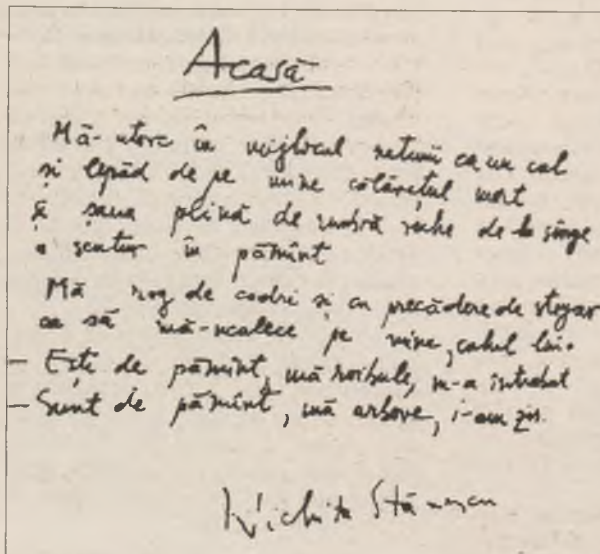 Acasă
Mă-ntorc în mijlocul naturii ca un cal
și lepăd de pe mine călărețul mort
și șaua plină de de sînge
o scutur în pămînt
Mă rog de codri și cu precădere de stejar
ca să mă-ncalece pe mine, calul lui.
— Ești de pămînt, mă roibule, m-a întrebat
— Sunt de pămînt, mă arbore, i-am zis.
Nichita Stănescu